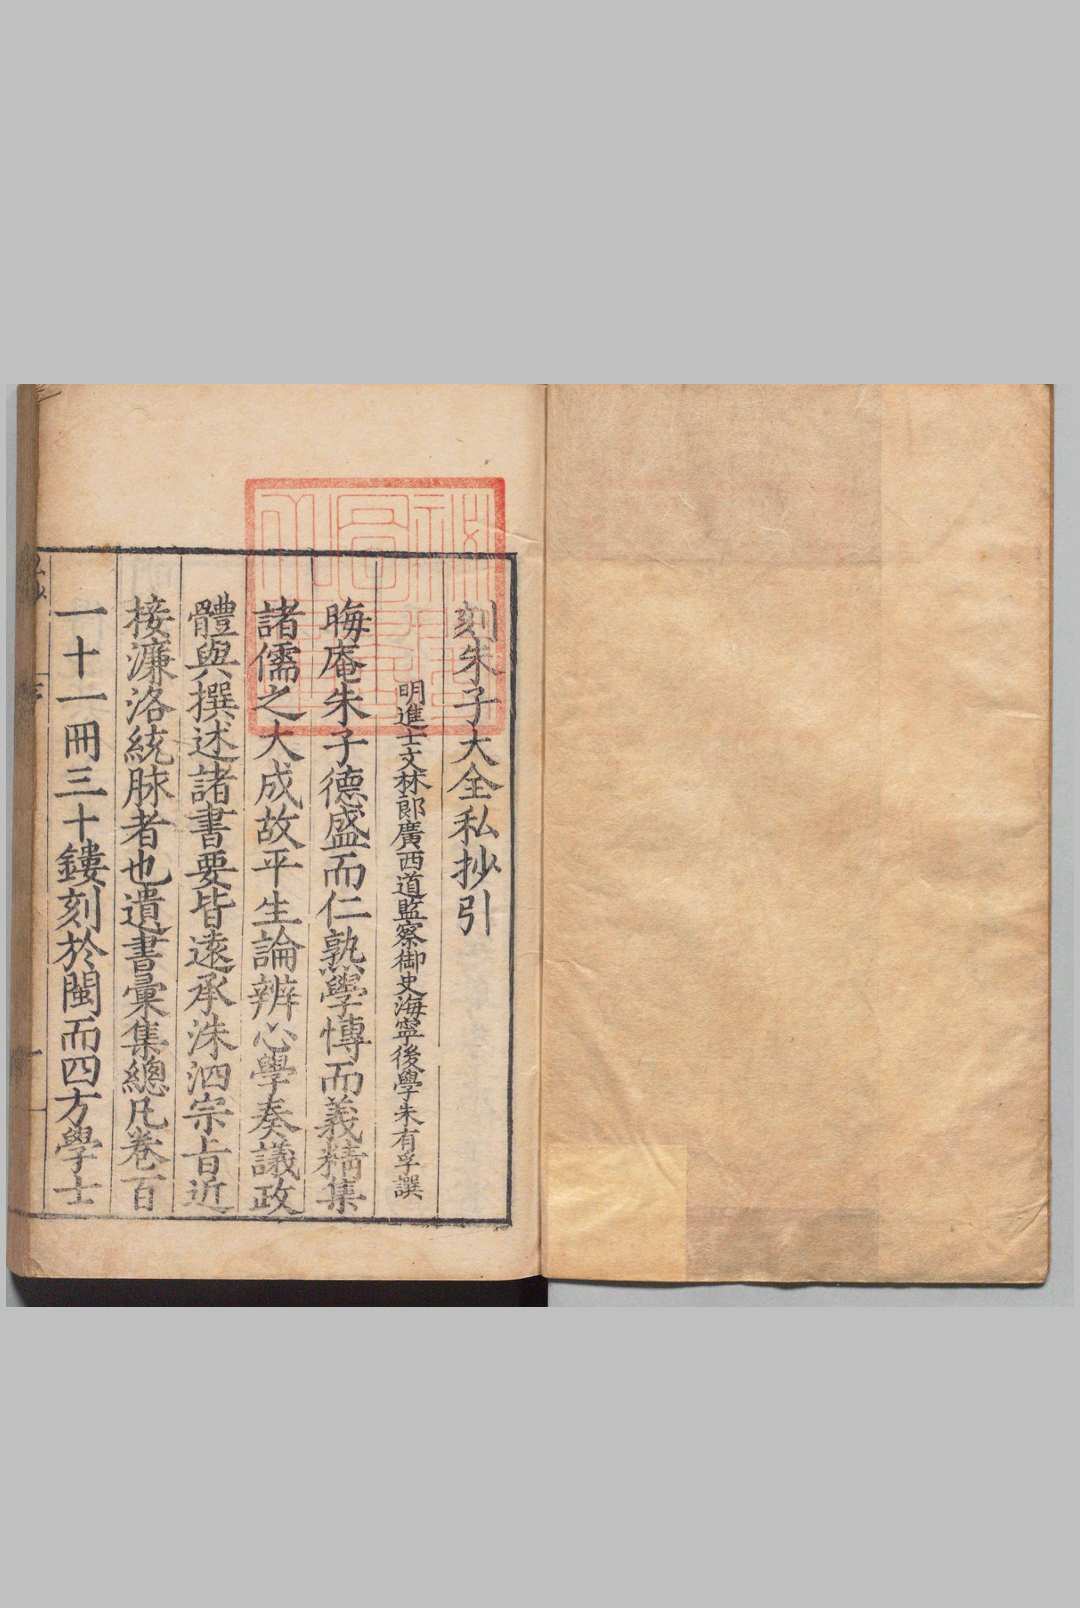 刻朱子大全私抄引
明進士文林郎廣西道監察御史海寧後學朱有孚譔
晦庵朱子德盛而仁熟學愽而義精集
諸儒之大成故平生論辨心學奏議政
體與撰述諸書要皆遠承洙泗宗旨近
接濂洛統脉者也遺書彙集總凡卷百
一十一冊三十鏤刻於閩而四方學士